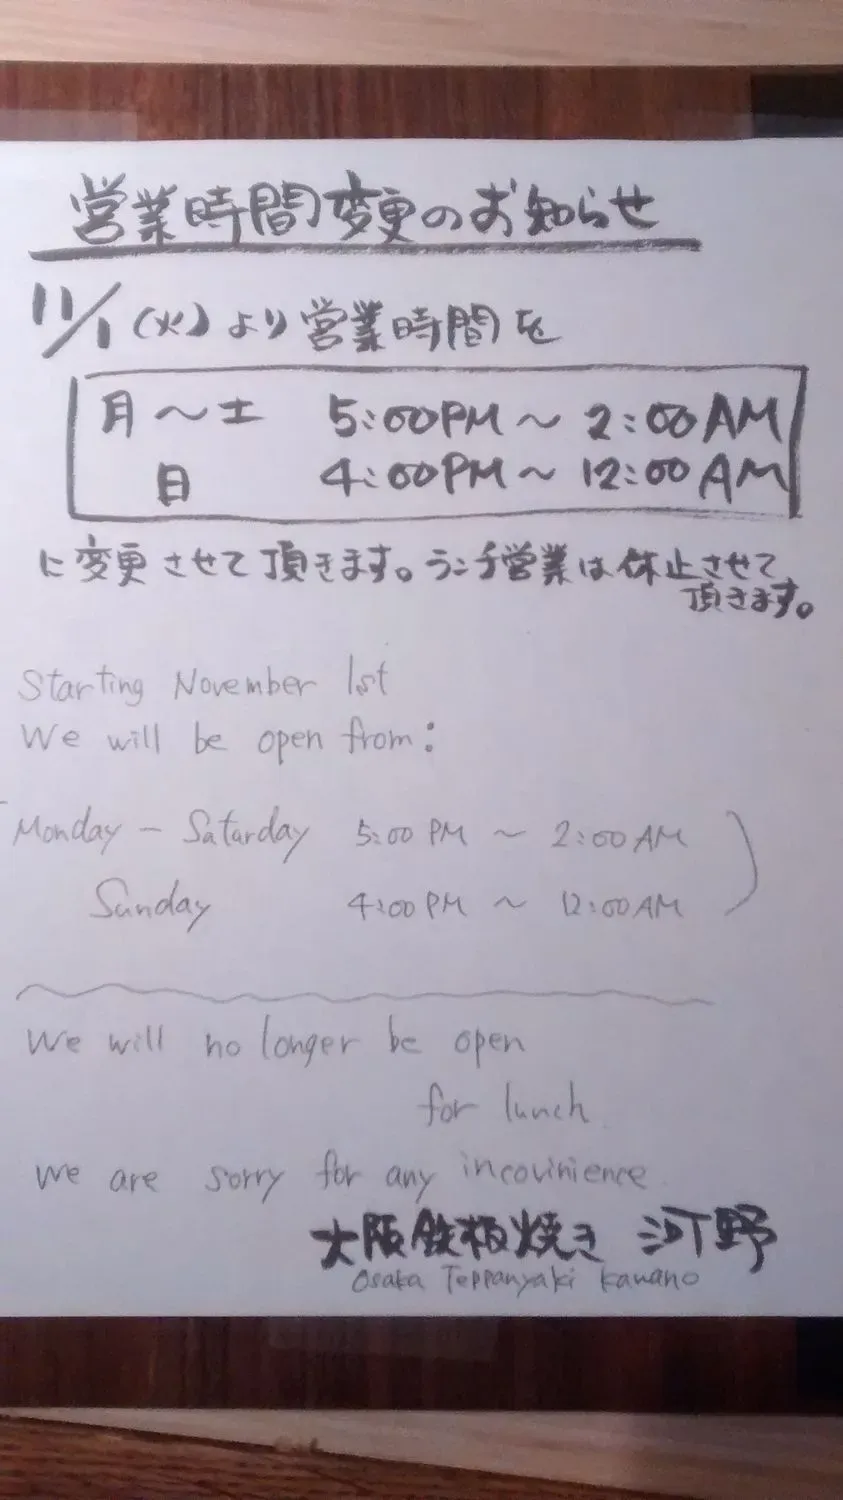 営業時間変更のお知らせ
11/1(火)より営業時間を
月～土 5:00PM～2:00AM
日 4:00PM～12:00AM
に変更させて頂きます。ランチ営業は休止させて
頂きます。
Starting November 1st
We will be open from:
Monday - Saturday 5:00PM ~ 2:00AM
Sunday 4:00PM ~ 12:00AM
We will no longer be open
for lunch.
We are sorry for any incovinience
大阪鉄板焼き 河野
Osaka Teppanyaki Kawano